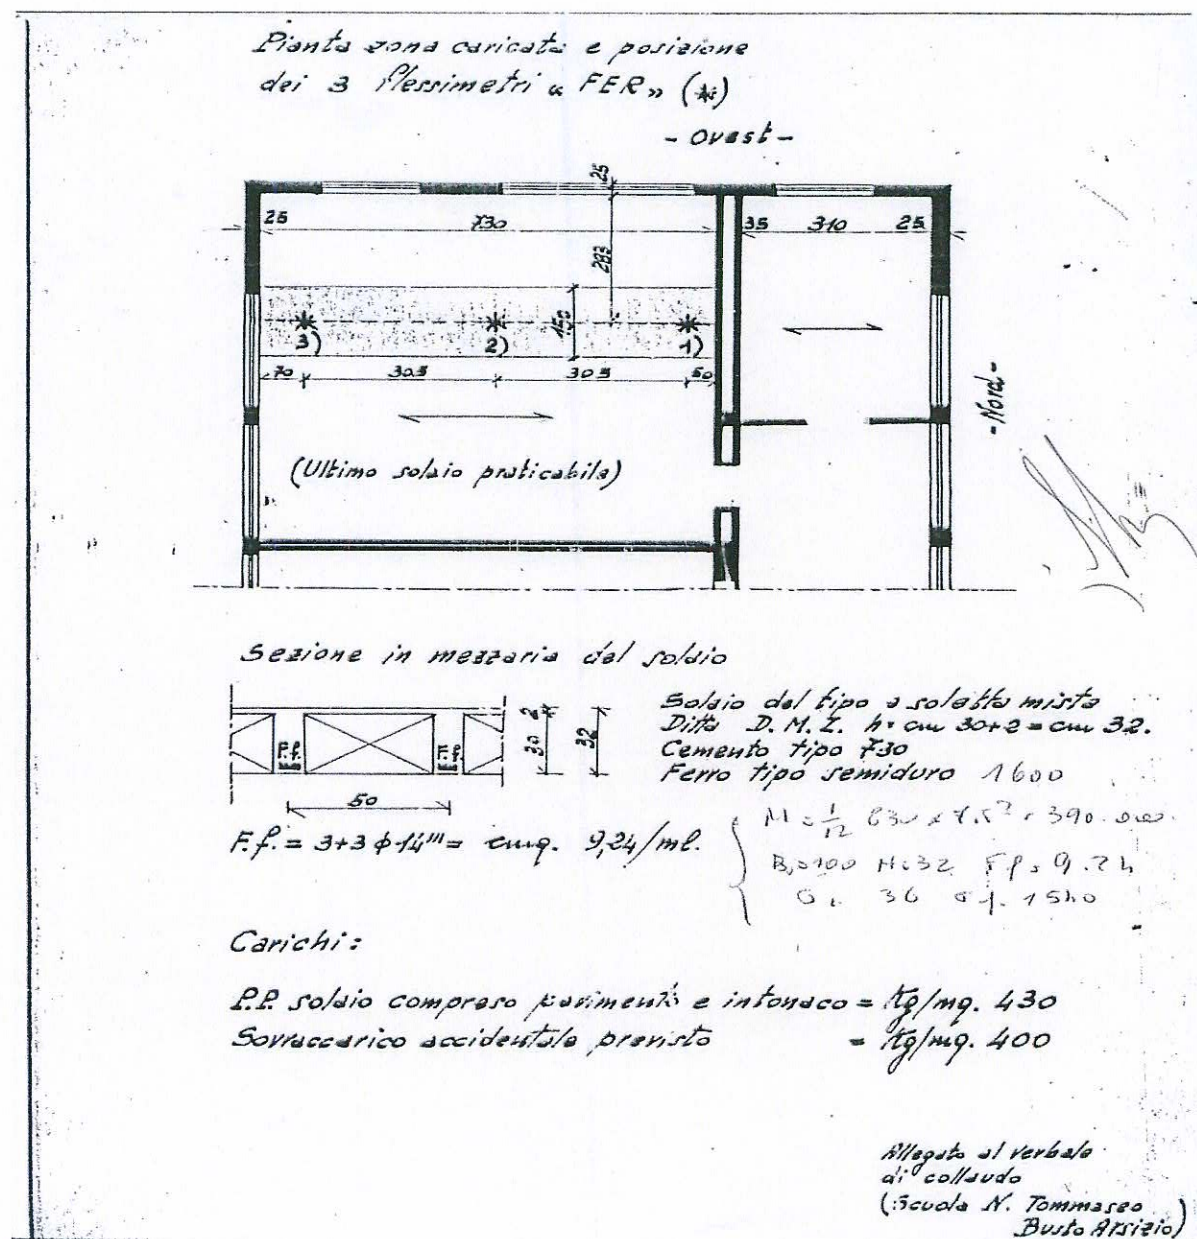 Pianta zona caricata e posizione
dei 3 flessimetri « FER » (*)
- Ovest -
25
25
730
35
310
25
283
150
3)
2)
1)
70
305
305
50
- Nord -
(Ultimo solaio praticabile)
Sezione in mezzaria del solaio
F.f.
F.f.
30
2
32
50
Solaio del tipo a soletta mista
Ditta D. M. Z. h = cm 30+2 = cm 32.
Cemento tipo 730
Ferro tipo semiduro 1600
F.f. = 3+3 φ 14''' = cmq. 9,24/ml.
M = 1/12 830 x 7.5² = 390.000
B = 100 H = 32 Ff = 9.24
36 1540
Carichi:
P.P. solaio compreso pavimento e intonaco = Kg/mq. 430
Sovraccarico accidentale previsto = Kg/mq. 400
Allegato al verbale
di collaudo
(Scuola N. Tommaseo
Busto Arsizio)